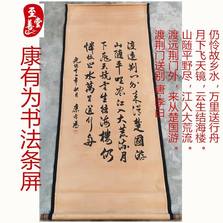 康有为书法条屏
渡荆门送别 唐 李白
渡远荆门外，来从楚国游。
山随平野尽，江入大荒流。
月下飞天镜，云生结海楼。
仍怜故乡水，万里送行舟
渡远荆门外来從楚國游
山随平野尽江入大荒流月
下飞天镜云生结海楼仍
怜故乡水万里送行舟